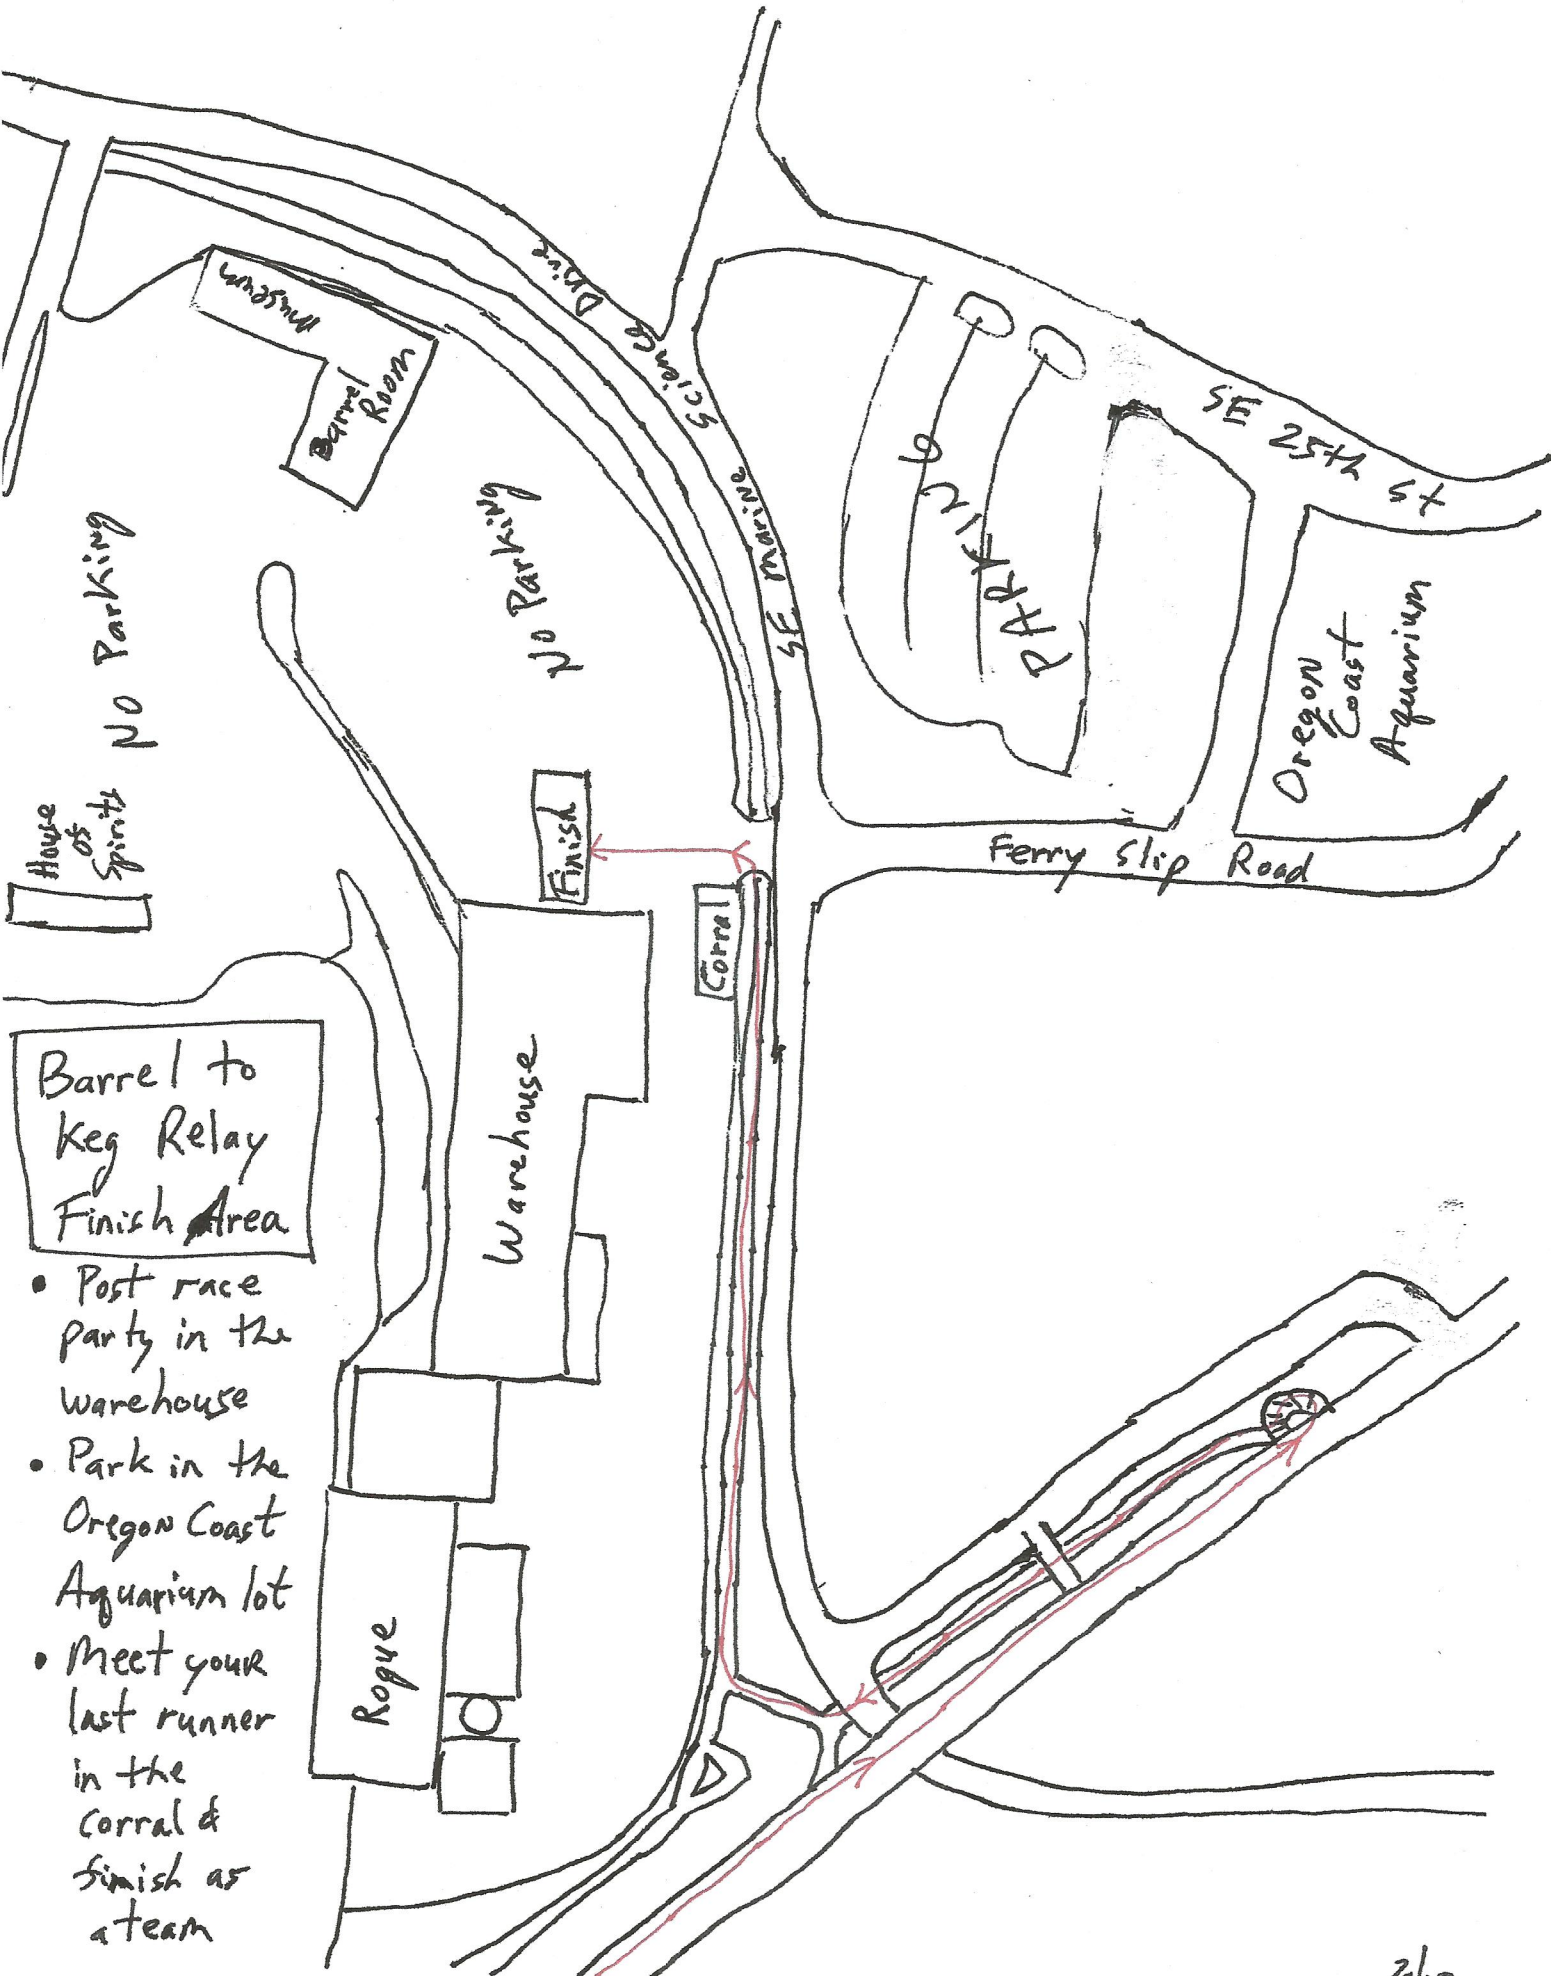 Museum
Barrel
Room
SE Marine Science Drive
No Parking
No Parking
PARKING
SE 25th St
Oregon
Coast
Aquarium
Ferry Slip Road
House
of
Spirits
Finish
Corral
Warehouse
Rogue
Barrel to
Keg Relay
Finish Area
• Post race
party in the
warehouse
• Park in the
Oregon Coast
Aquarium lot
• Meet your
last runner
in the
corral &
finish as
a team